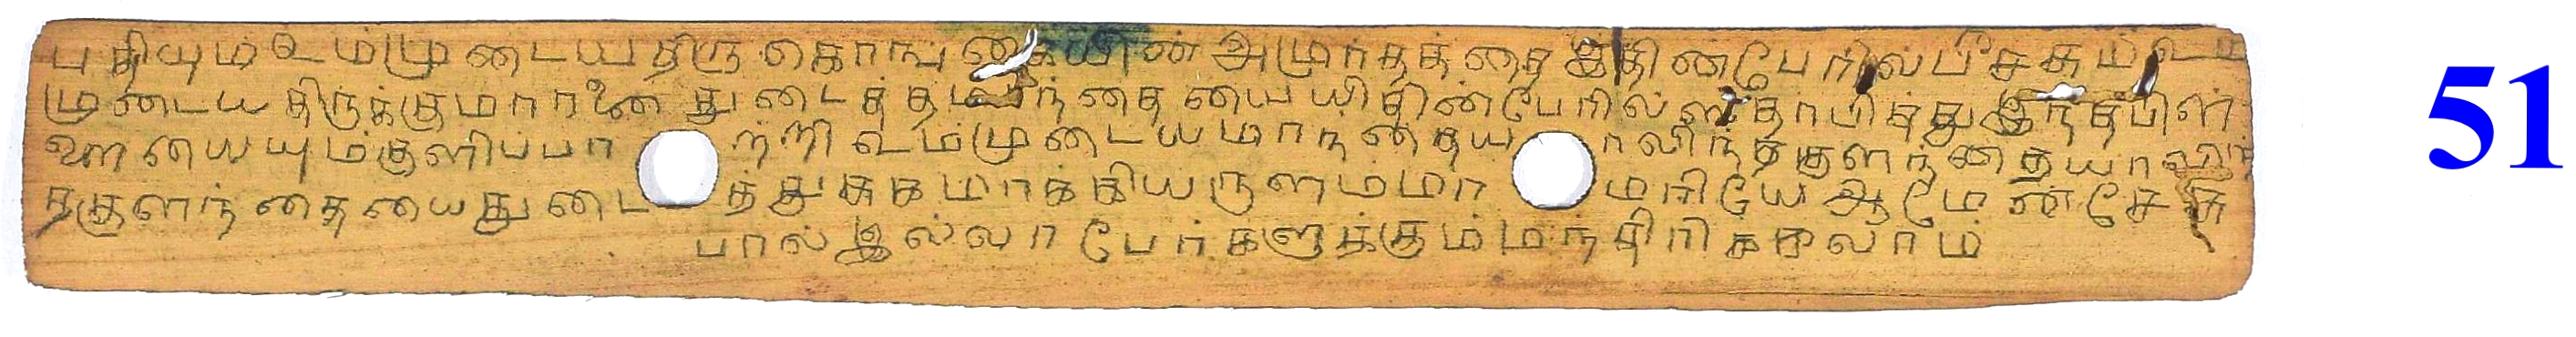 புதியும் உம்முடைய திரு கொங்கையின் அமுர்தத்தை இதின்பேரில் பீச்சும் உம்
முடைய திருக்குமாரனை துடைத்த மாந்தையை யிதின்பேரில் ஸ்தாபித்து இந்த பிள்
ளையையும் குளிப்பாற்றி உம்முடைய மாந்தையாலிந்த குளந்தையா இந்
தகுளந்தையை துடைத்து சுகமாக்கியருளம்மா மரியே ஆமேன் சேசு
பால் இல்லா பேர்களுக்கும் மந்திரிக்கலாம்
51